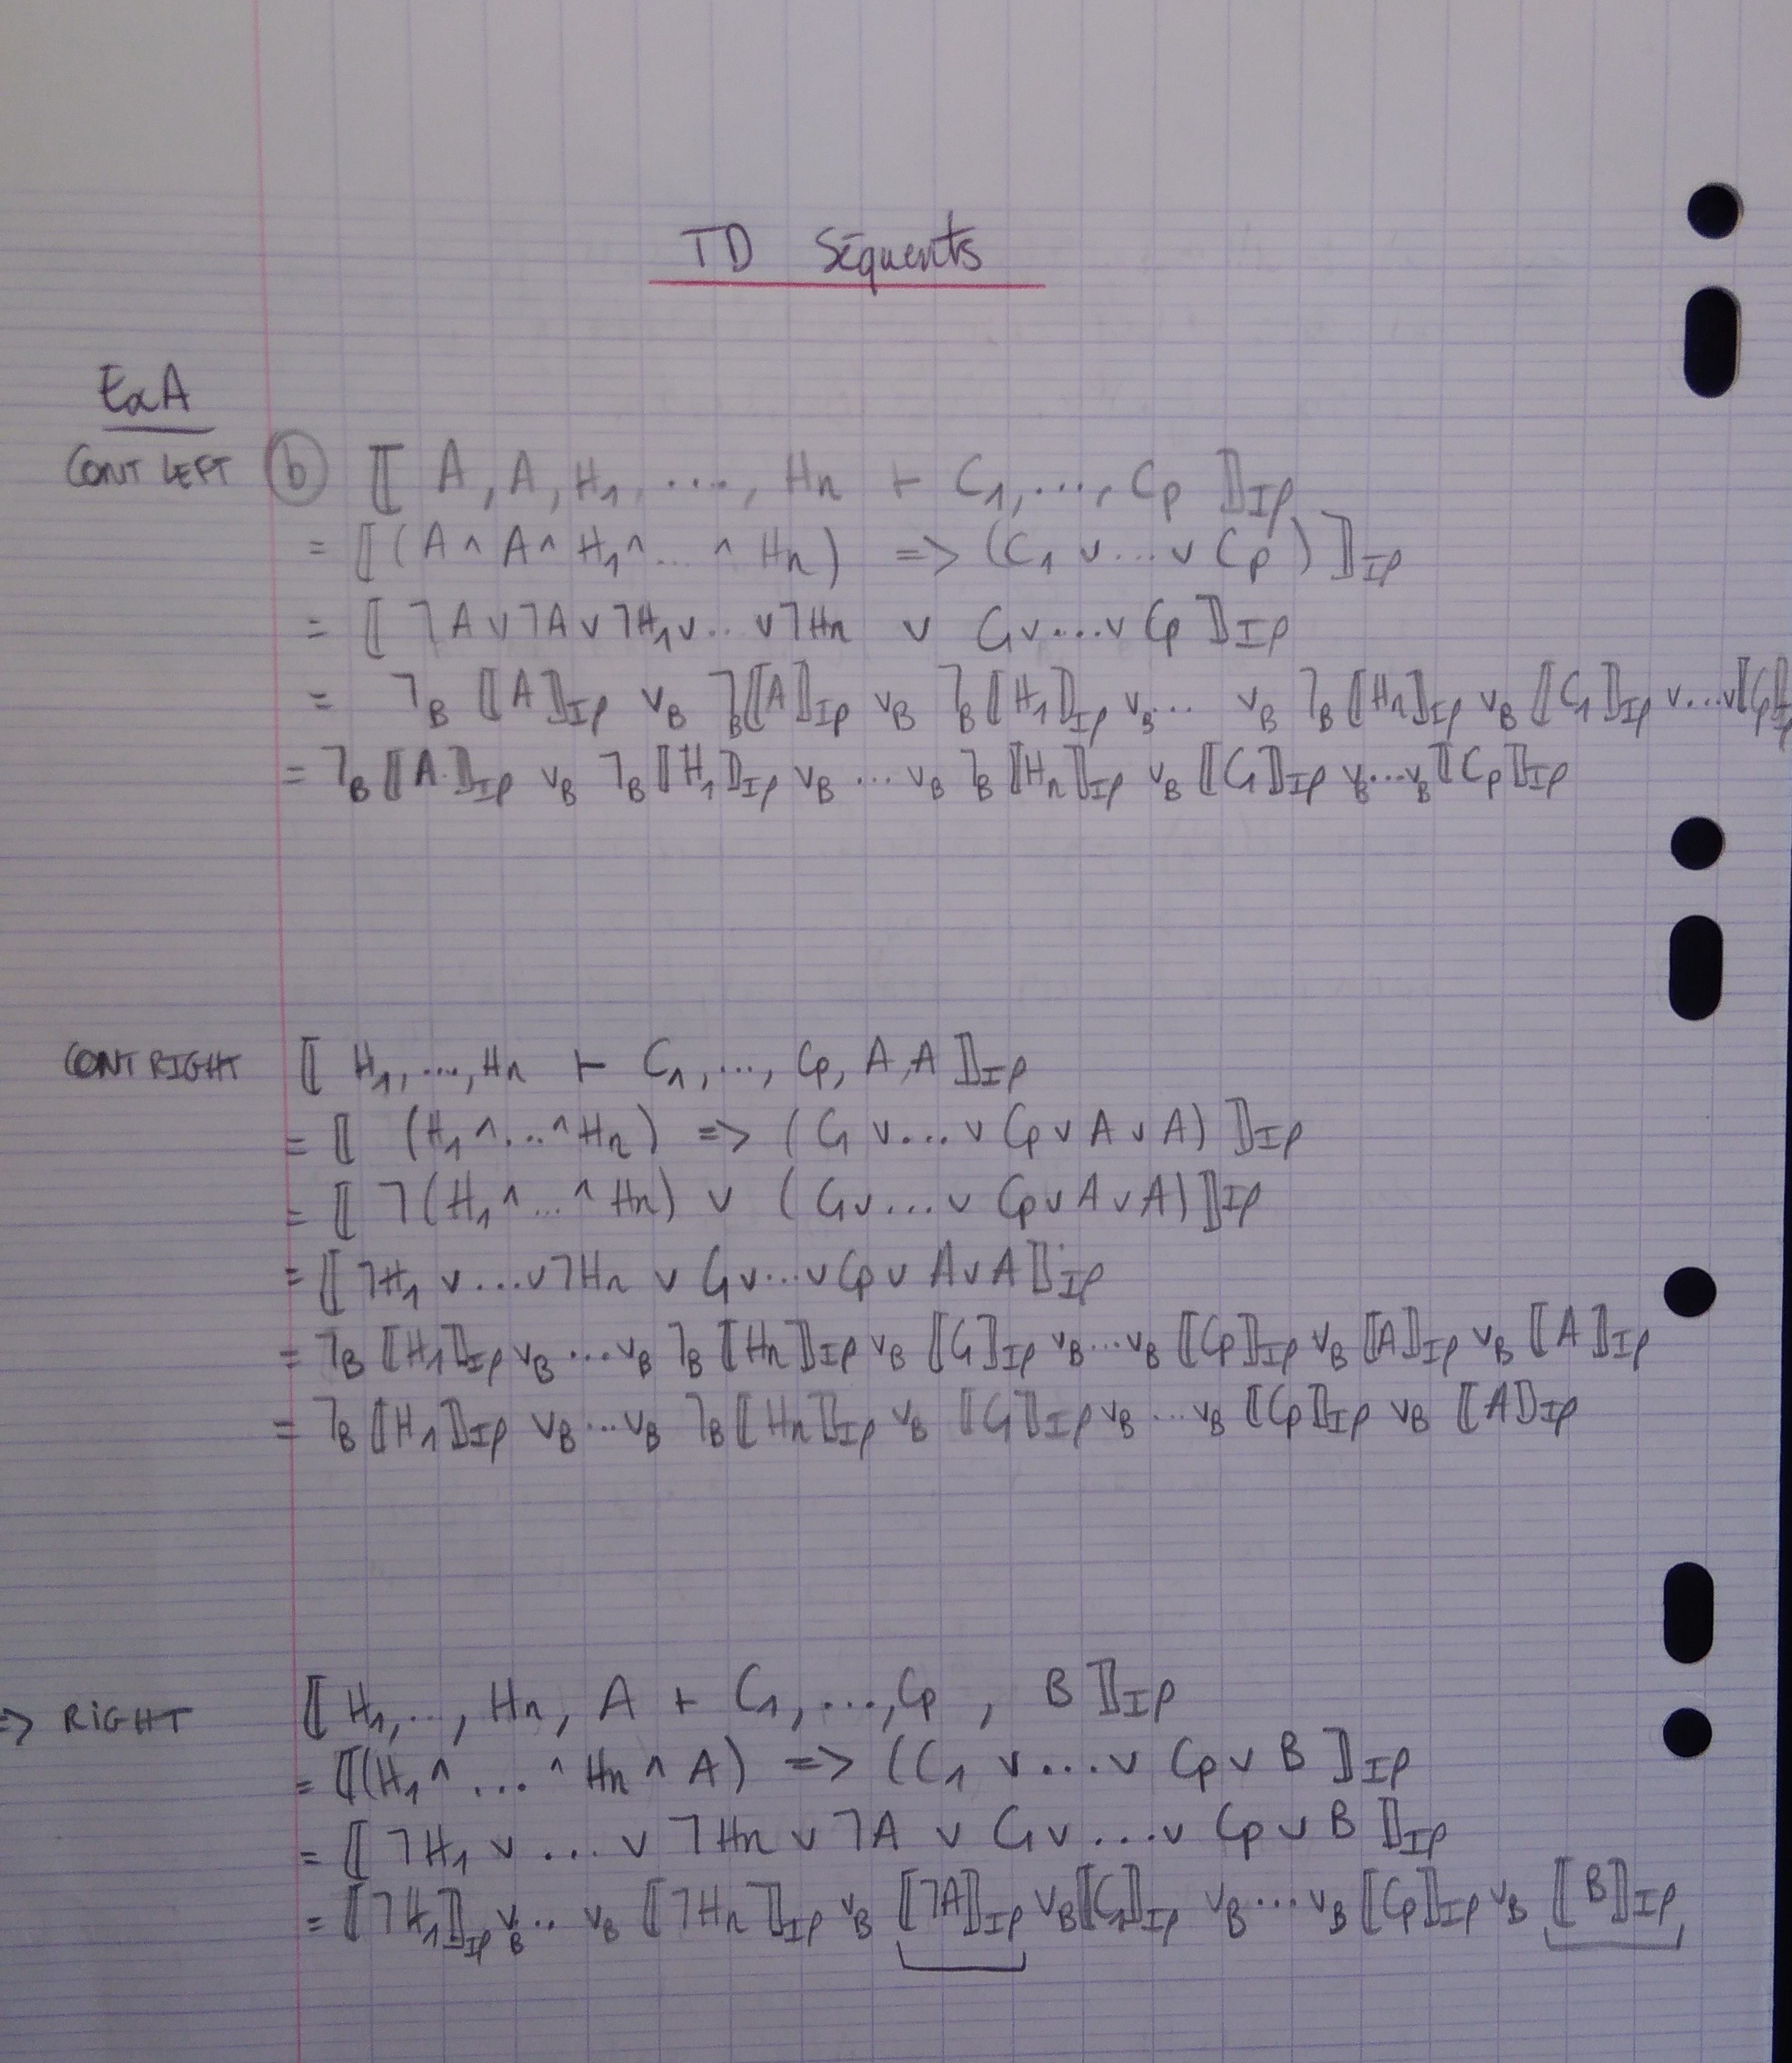 TD Séquents
Ex A
CONT LEFT ⓑ ⟦ A, A, H₁, ...., Hn ⊢ C₁, ..., Cp ⟧Iρ
= ⟦(A ∧ A ∧ H₁ ∧ ... ∧ Hn) => (C₁ ∨ ... ∨ Cp)⟧Iρ
= ⟦ ¬A ∨ ¬A ∨ ¬H₁ ∨ .. ∨ ¬Hn ∨ C₁ ∨ .... ∨ Cp ⟧Iρ
= ¬B ⟦A⟧Iρ ∨B ¬B ⟦A⟧Iρ ∨B ¬B ⟦H₁⟧Iρ ∨B ... ∨B ¬B ⟦Hn⟧Iρ ∨B ⟦C₁⟧Iρ ∨ ... ∨ ⟦Cp⟧Iρ
= ¬B ⟦A⟧Iρ ∨B ¬B ⟦H₁⟧Iρ ∨B ... ∨B ¬B ⟦Hn⟧Iρ ∨B ⟦C₁⟧Iρ ∨B ... ∨B ⟦Cp⟧Iρ
CONT RIGHT ⟦ H₁, ..., Hn ⊢ C₁, ..., Cp, A, A ⟧Iρ
= ⟦ (H₁ ∧ ... ∧ Hn) => (C₁ ∨ .... ∨ Cp ∨ A ∨ A) ⟧Iρ
= ⟦ ¬(H₁ ∧ ... ∧ Hn) ∨ (C₁ ∨ ... ∨ Cp ∨ A ∨ A) ⟧Iρ
= ⟦ ¬H₁ ∨ ... ∨ ¬Hn ∨ C₁ ∨ ... ∨ Cp ∨ A ∨ A ⟧Iρ
= ¬B ⟦H₁⟧Iρ ∨B ... ∨B ¬B ⟦Hn⟧Iρ ∨B ⟦C₁⟧Iρ ∨B ... ∨B ⟦Cp⟧Iρ ∨B ⟦A⟧Iρ ∨B ⟦A⟧Iρ
= ¬B ⟦H₁⟧Iρ ∨B ... ∨B ¬B ⟦Hn⟧Iρ ∨B ⟦C₁⟧Iρ ∨B ... ∨B ⟦Cp⟧Iρ ∨B ⟦A⟧Iρ
=> RIGHT ⟦ H₁, .., Hn, A ⊢ C₁, ..., Cp, B ⟧Iρ
= ⟦(H₁ ∧ ... ∧ Hn ∧ A) => (C₁ ∨ ... ∨ Cp ∨ B ⟧Iρ
= ⟦ ¬H₁ ∨ ... ∨ ¬Hn ∨ ¬A ∨ C₁ ∨ ... ∨ Cp ∨ B ⟧Iρ
= ⟦¬H₁⟧Iρ ∨B .. ∨B ⟦¬Hn⟧Iρ ∨B ⟦¬A⟧Iρ ∨B ⟦C₁⟧Iρ ∨B ... ∨B ⟦Cp⟧Iρ ∨B ⟦B⟧Iρ